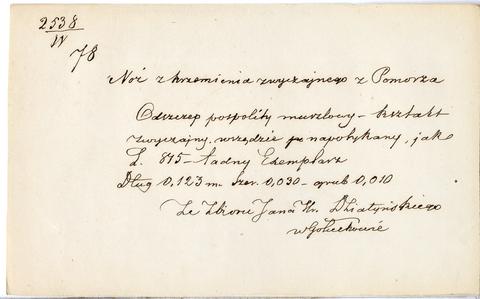 2538
IV
78
Nóż z krzemienia zwyczajnego z Pomorza
Odszczep pospolity muszlowy – kształt
zwyczajny, wszędzie napotykany, jak
L. 875 – ładny Exemplarz
Dług 0,123 m. Szer. 0,030 – grub 0,010
Ze Zbioru Jana Hr. Działyńskiego
w Gołuchowie